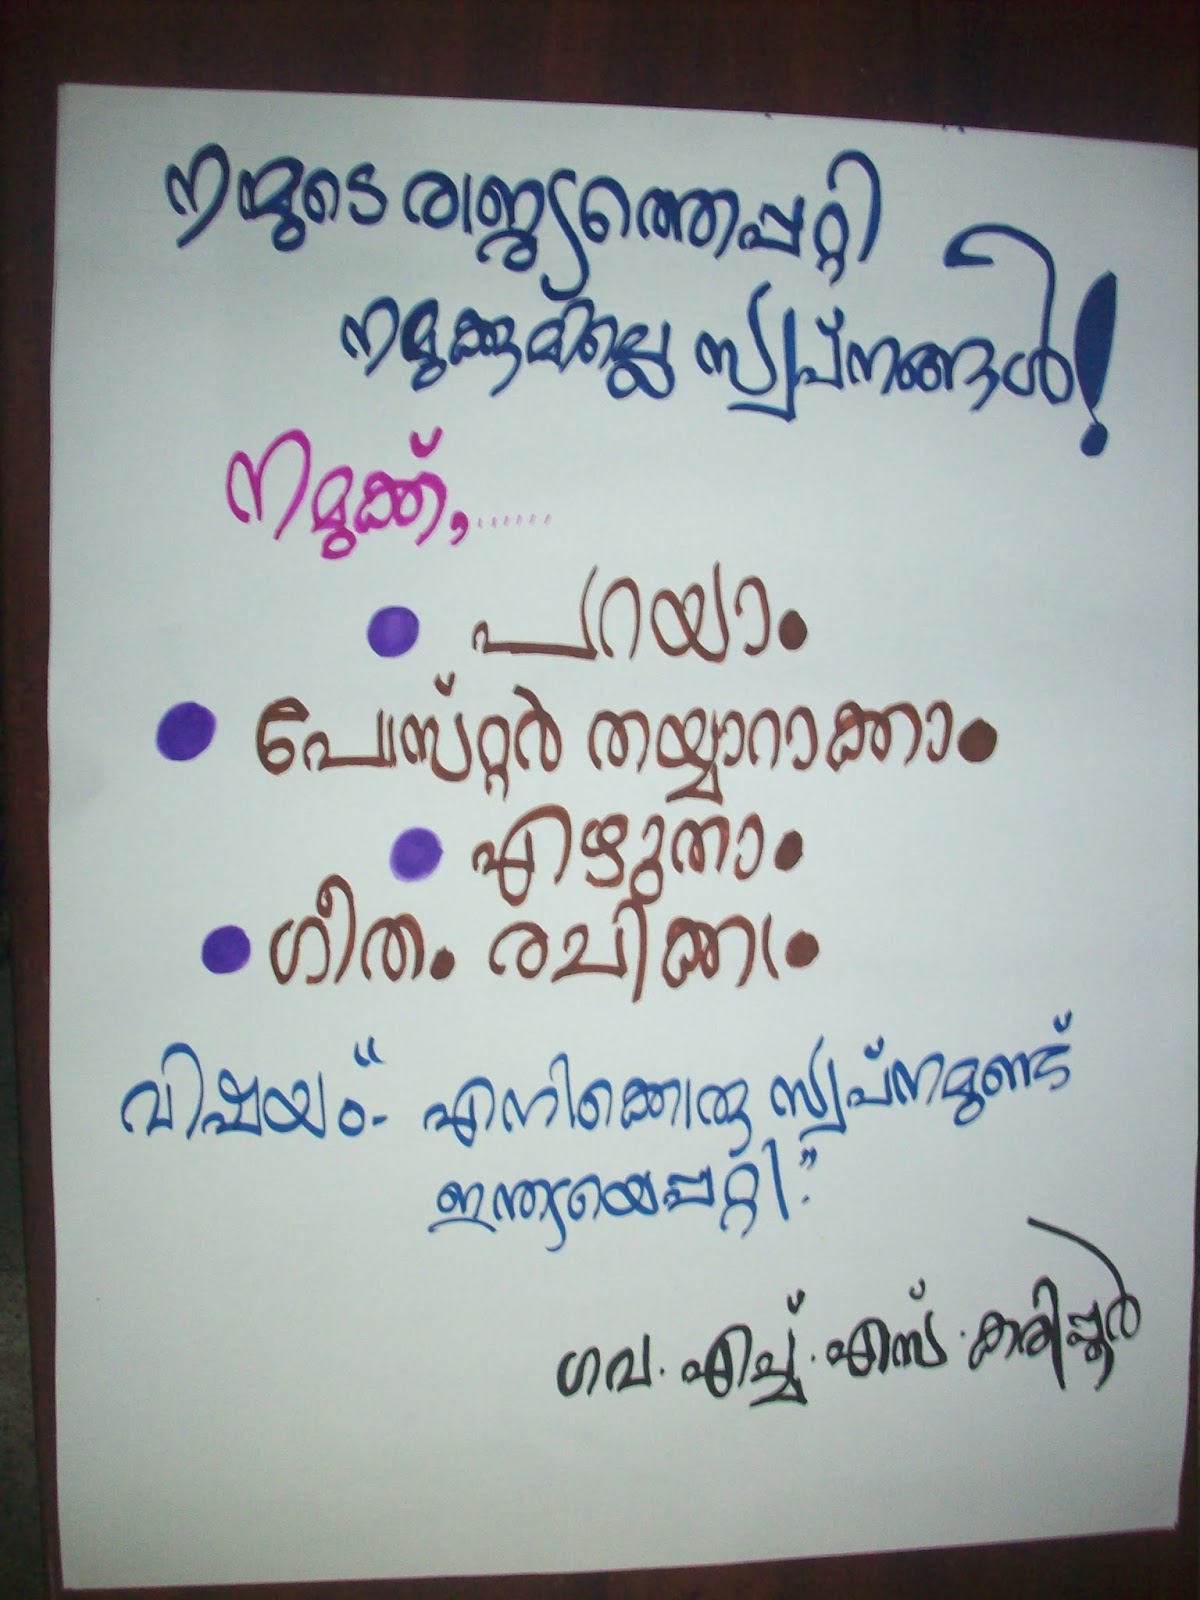 നമ്മുടെ രാജ്യത്തെപ്പറ്റി
നമുക്കുമില്ലെ സ്വപ്നങ്ങൾ!
നമുക്ക്,......
● പറയാം
● പോസ്റ്റർ തയ്യാറാക്കാം
● എഴുതാം
● ഗീതം രചിക്കാം
വിഷയം:- “എനിക്കൊരു സ്വപ്നമുണ്ട്
ഇന്ത്യയെപ്പറ്റി.”
ഗവ. എച്ച്. എസ്. കരിപ്പൂർ